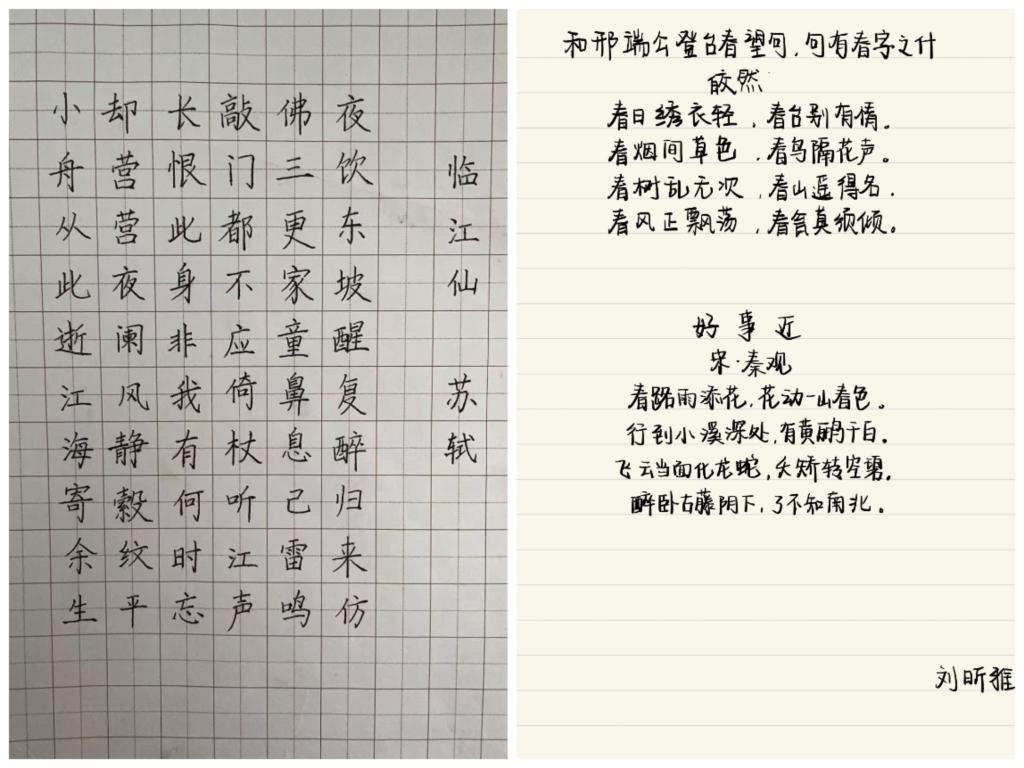 临江仙 苏轼
夜饮东坡醒复醉归来仿
佛三更家童鼻息已雷鸣
敲门都不应倚杖听江声
长恨此身非我有何时忘
却营营夜阑风静縠纹平
小舟从此逝江海寄余生
和邢端公登台春望句,句有春字之什
皎然
春日绣衣轻，春台别有情。
春烟间草色，春鸟隔花声。
春树乱无次，春山遥得名.
春风正飘荡，春真须倾。
好事近
宋·秦观
春路雨添花,花动一山春色。
行到小溪深处,有黄鹂千百。
飞云当面化龙蛇,夭矫转空碧。
醉卧古藤阴下,了不知南北。
刘昕雅